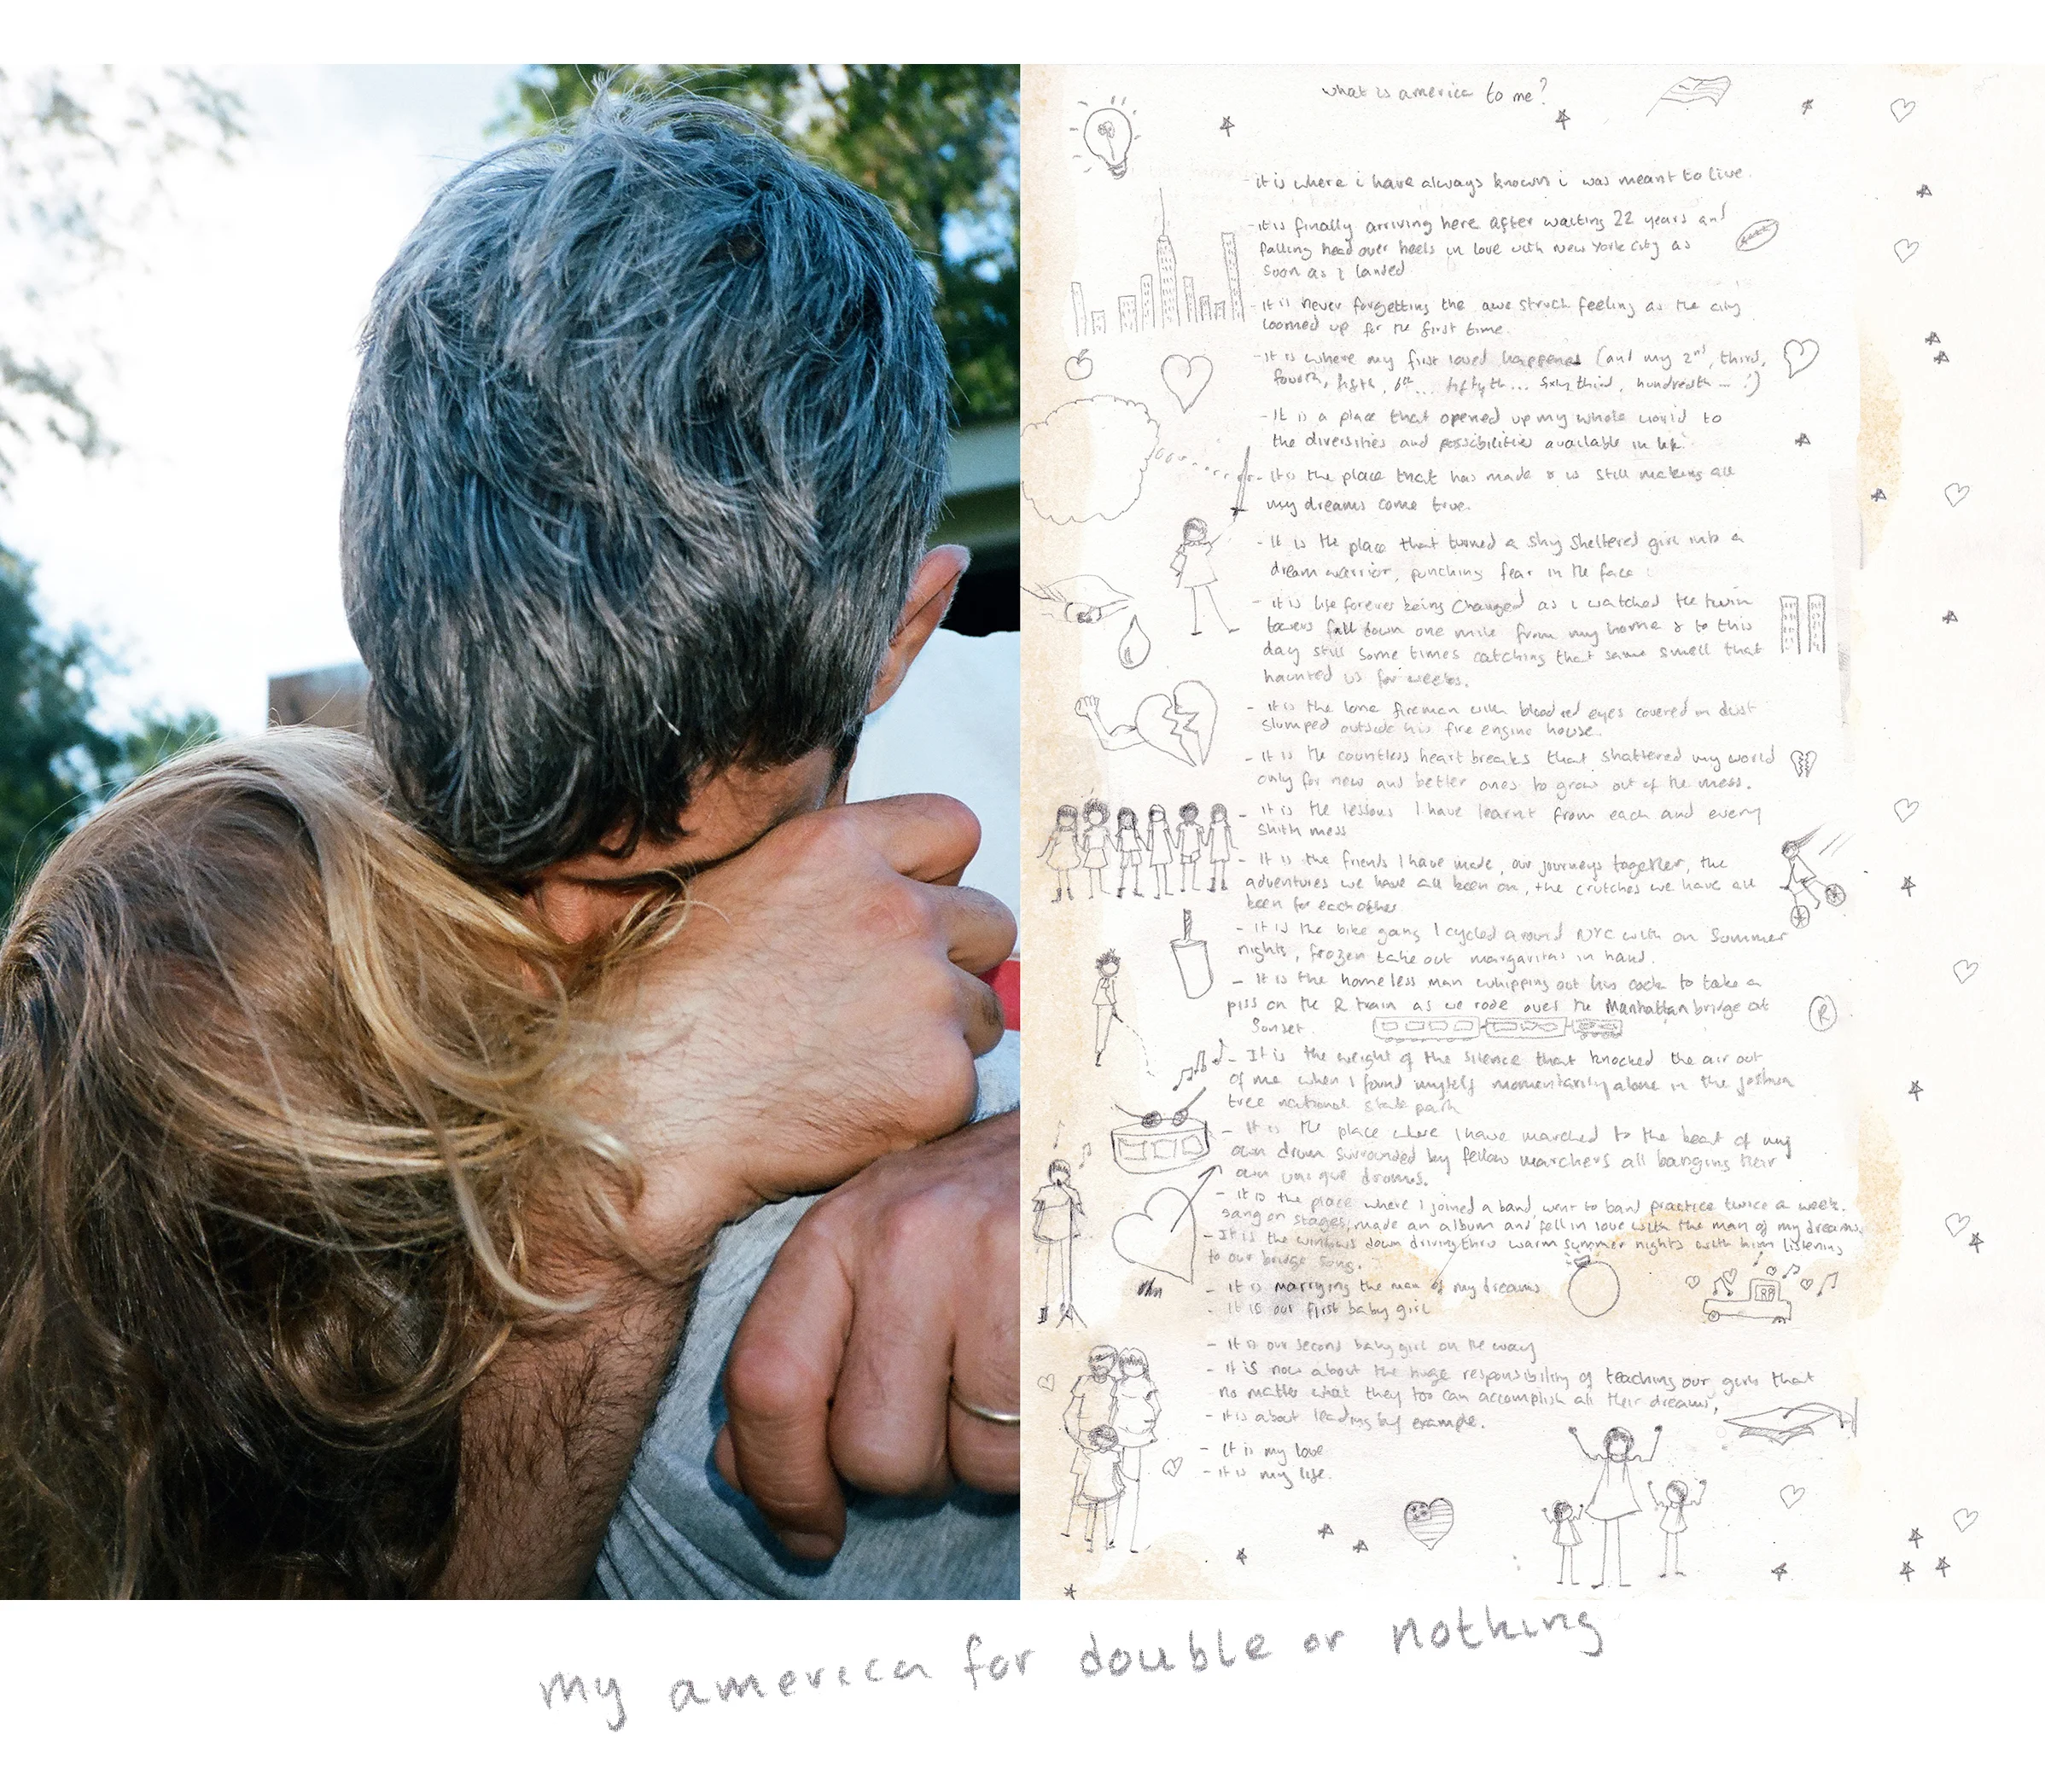 what is america to me?
- it is where i have always known i was meant to live.
- it is finally arriving here after waiting 22 years and
falling head over heels in love with New York City as
soon as i landed
- it is never forgetting the awe struck feeling as the city
loomed up for the first time.
- it is where my first loved happened (and my 2nd, third,
fourth, fifth, 6th... fiftyth... sixty third, hundredth - :)
- It is a place that opened up my whole world to
the diversities and possibilities available in life.
- it is the place that has made & is still making all
my dreams come true.
- It is the place that turned a shy sheltered girl into a
dream warrior, punching fear in the face
- it is life forever being changed as i watched the twin
towers fall down one mile from my home & to this
day still some times catching that same smell that
haunted us for weeks.
- it is the lone fireman with blood red eyes covered in dust
slumped outside his fire engine house.
- it is the countless heart breaks that shattered my world
only for new and better ones to grow out of the mess.
- it is the lessons I have learnt from each and every
mess
- It is the friends I have made, our journeys together, the
adventures we have all been on, the crutches we have all
been for each other.
- it is the bike gang I cycled around NYC with on summer
nights, frozen take out margaritas in hand.
- It is the homeless man whipping out his cock to take a
piss on the R train as we rode over the Manhattan bridge at
sunset.
R
- It is the weight of the silence that knocked the air out
of me when I found myself momentarily alone in the Joshua
tree national state park
- It is the place where I have marched to the beat of my
own drum surrounded by fellow marchers all banging their
own unique drums.
- it is the place where I joined a band, went to band practice twice a week.
sang on stages, made an album and fell in love with the man of my dreams.
- It is the windows down driving thru warm summer nights with him listening
to our bridge song.
- it is marrying the man of my dreams
- it is our first baby girl
- it is our second baby girl on the way
- it is now about the huge responsibility of teaching our girls that
no matter what they too can accomplish all their dreams,
- it is about leading by example.
- it is my love
- it is my life.
my america for double or nothing